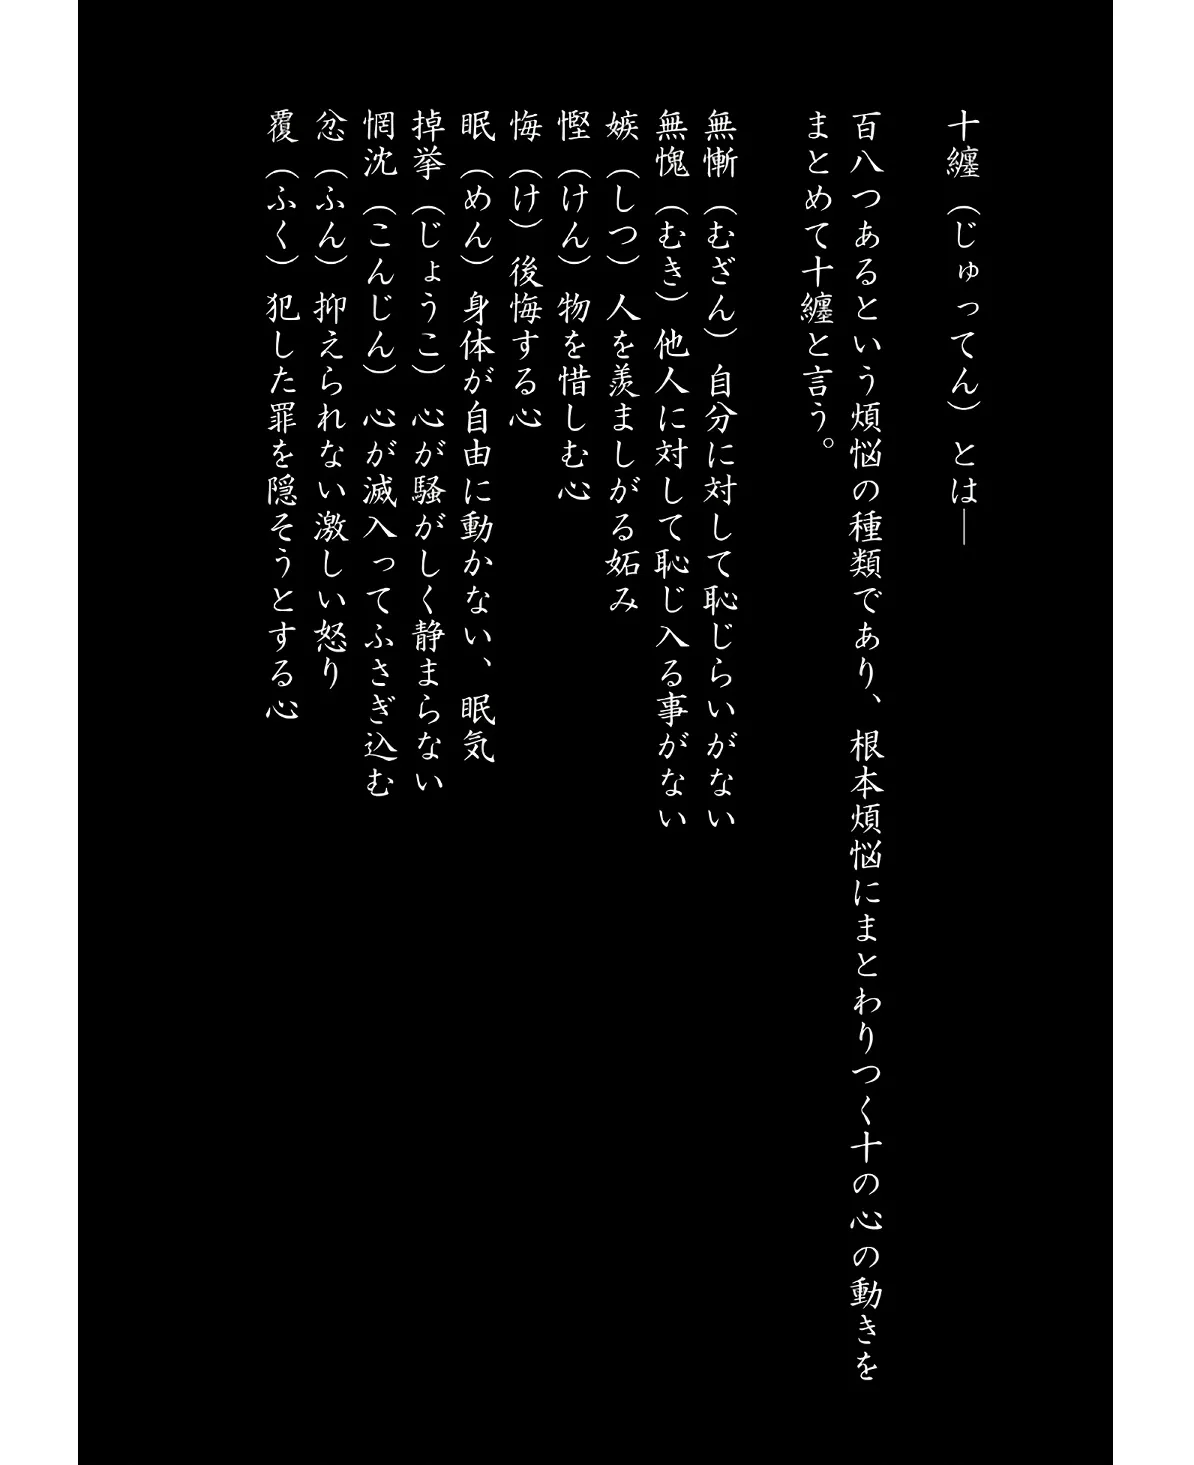 十纏（じゅってん）とは―
百八つあるという煩悩の種類であり、根本煩悩にまとわりつく十の心の動きを
まとめて十纏と言う。
無慚（むざん）自分に対して恥じらいがない
無愧（むき）他人に対して恥じ入る事がない
嫉（しつ）人を羨ましがる妬み
慳（けん）物を惜しむ心
悔（け）後悔する心
眠（めん）身体が自由に動かない、眠気
掉挙（じょうこ）心が騒がしく静まらない
惘沈（こんじん）心が滅入ってふさぎ込む
忿（ふん）抑えられない激しい怒り
覆（ふく）犯した罪を隠そうとする心